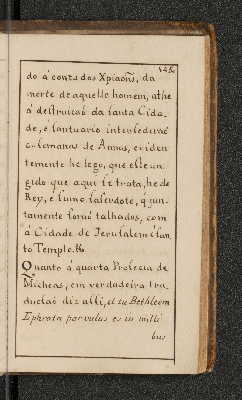 do á conta dos Xpiaoñs, da
morte de aquelle homem, athe
á destruicaó da santa Cida-
de, e santuario interlederaé
semanas de Annus, eviden
temente he logo, que elle un-
gido que aqui se trata, he de
Rey, e sumo saserdote, q jun-
tamente foraé talhados, com
á Cidade de Jerusalem e San
to Templo.
Quanto á quarta Profecia de
Micheas, em verdadeira tra-
ducsaó diz assi, et tu Bethleem
Ephrata parvulus es in milli
bus